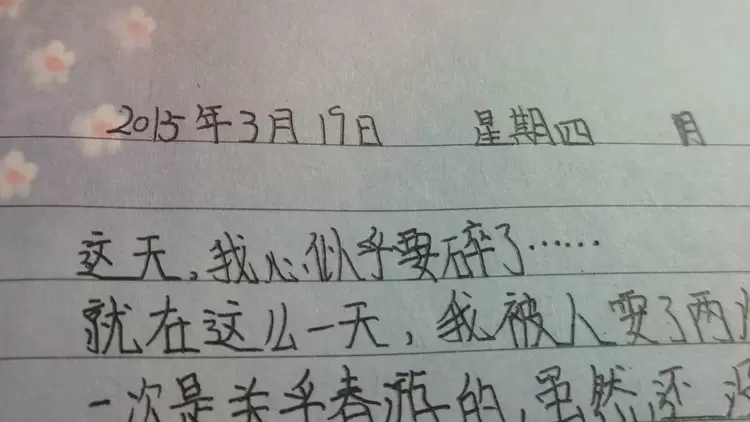 2015年3月19日 星期四
这天,我心似乎要碎了……
就在这么一天,我被人耍了两
一次是关乎春游的,虽然还